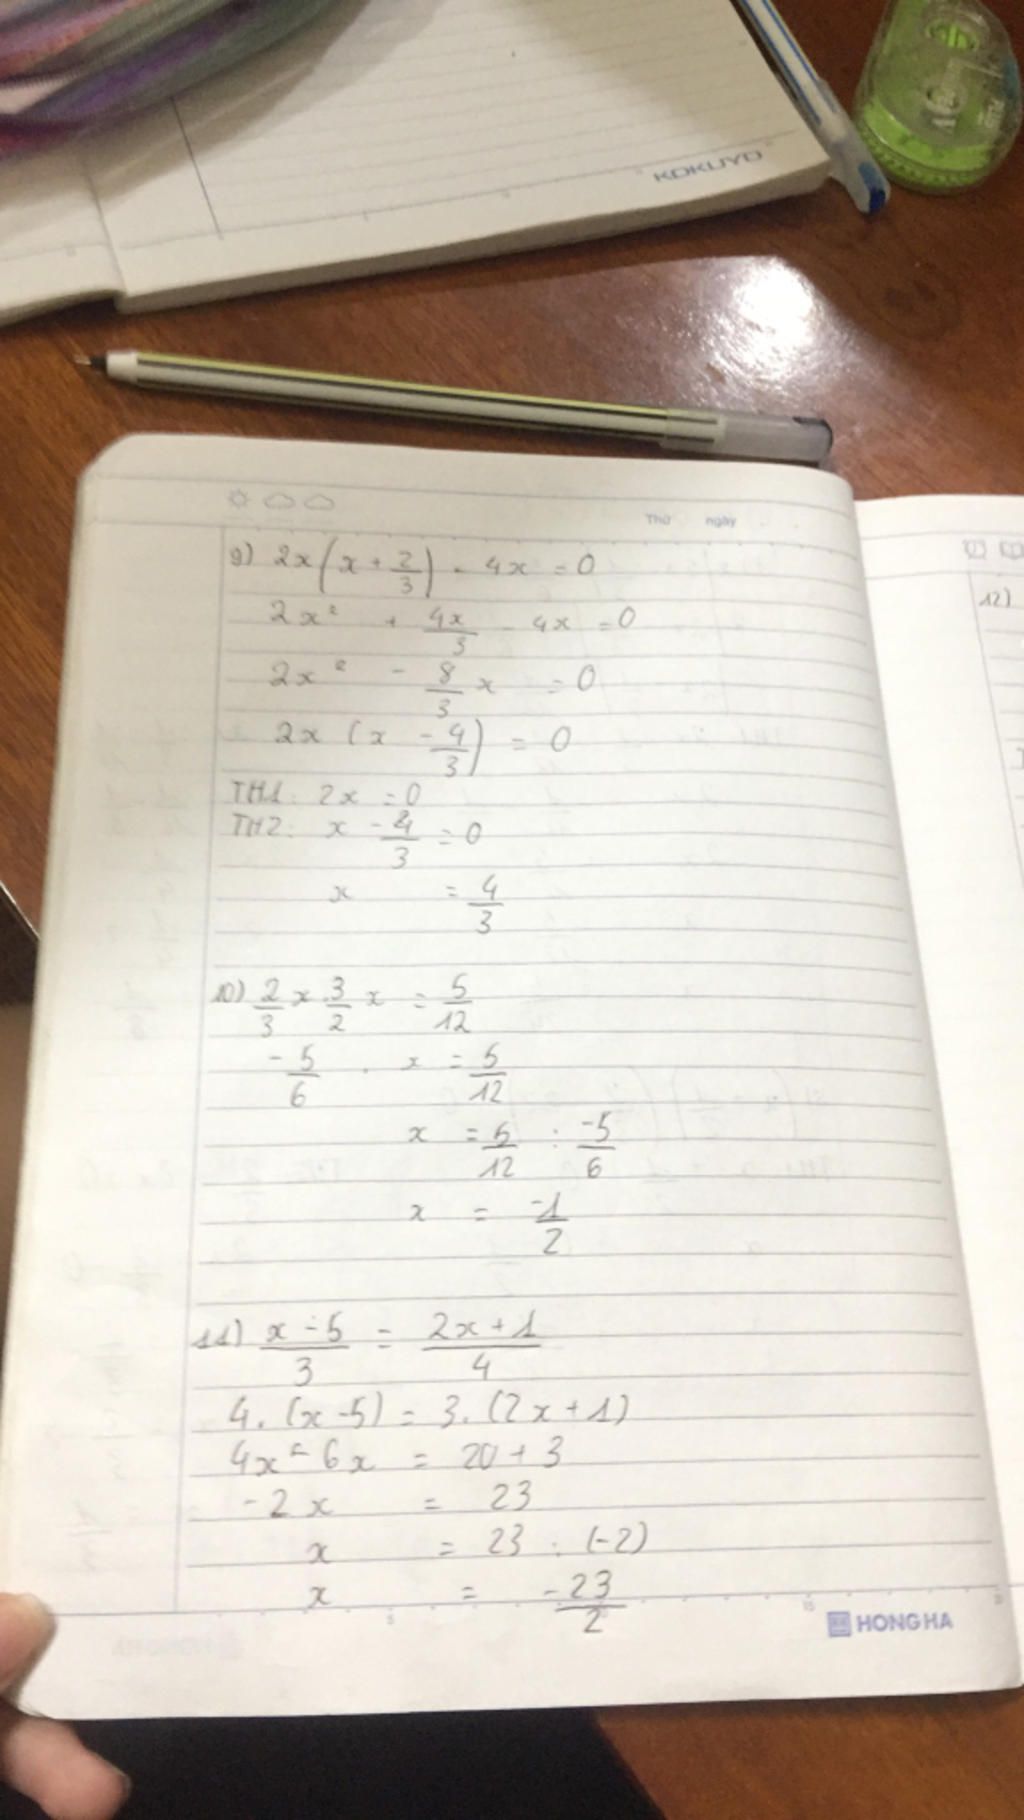 KOKUYO
Thứ ngày
9) 2x(x + 2/3) - 4x = 0
2x² + 4x/3 - 4x = 0
2x² - 8/3 x = 0
2x (x - 4/3) = 0
TH1: 2x = 0
TH2: x - 4/3 = 0
x = 4/3
10) 2/3 x . 3/2 x = 5/12
-5/6 . x = 5/12
x = 5/12 : -5/6
x = -1/2
11) x - 5/3 = 2x + 1/4
4. (x - 5) = 3. (2x + 1)
4x - 6x = 20 + 3
-2x = 23
x = 23 : (-2)
x = -23/2
5
15
HONG HA
12)